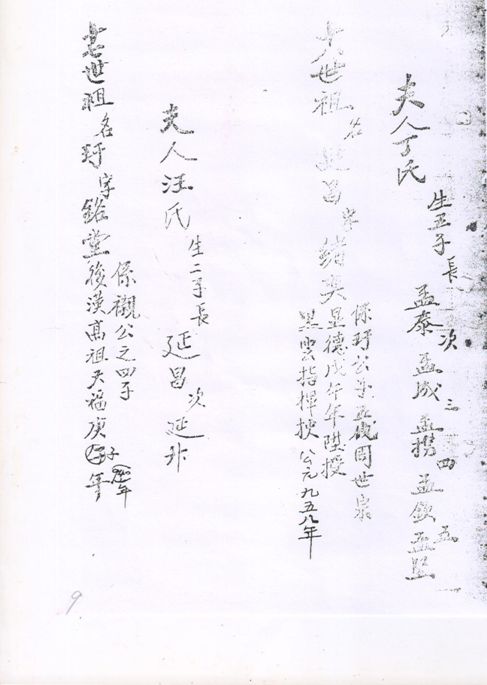 十七世祖 名玗 字銘堂 後漢高祖天福庚子年
係觀公之四子
夫人汪氏 生二子 長延昌 次延升
十八世祖 名延昌 字緒奕 顯德戊午年陞授
係玗公子五代周世宗
雲指揮使 公元九五八年
夫人丁氏 生五子 長孟泰 次孟成 三孟 四孟欽 五孟堅
9